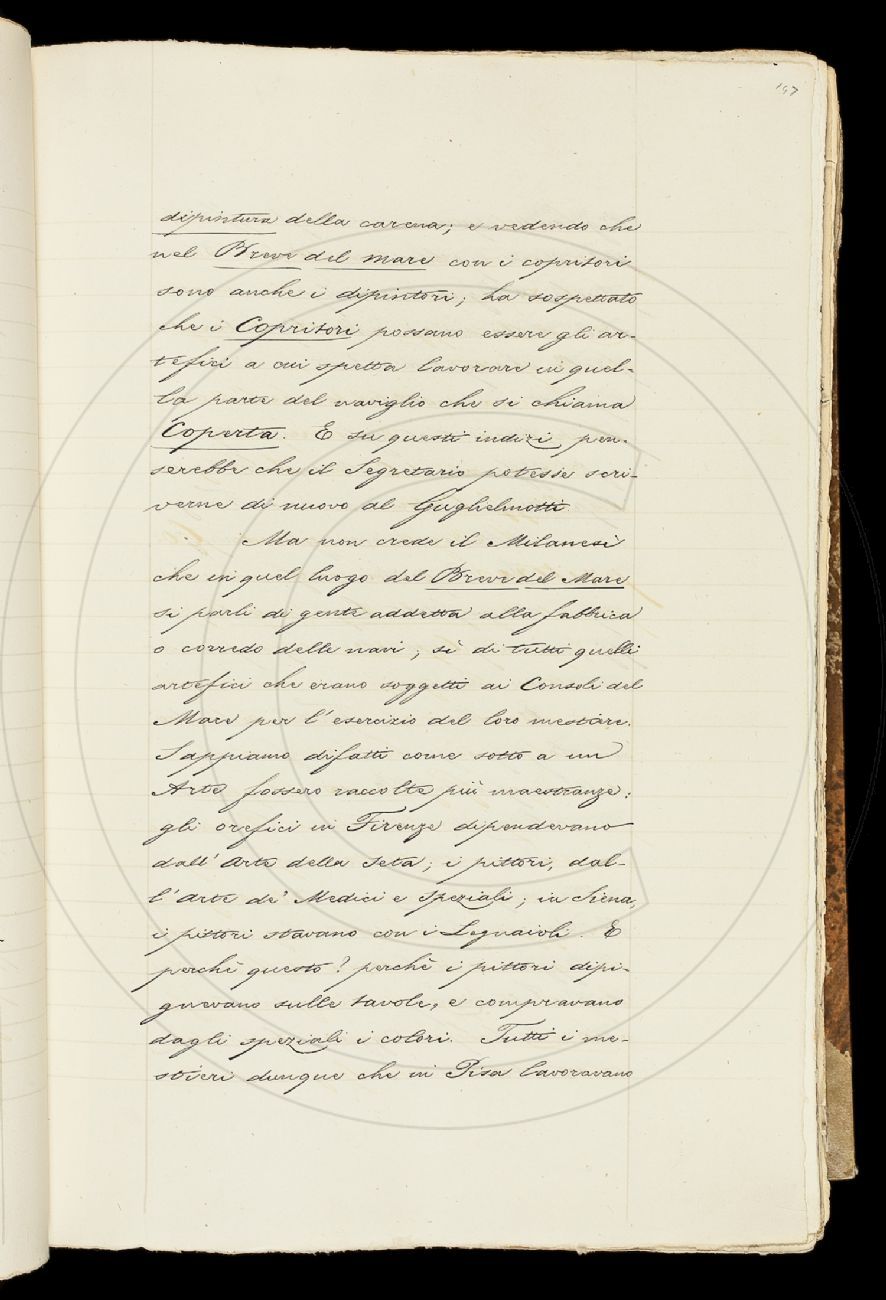 197
dipintura della carena; e vedendo che
nel Breve del mare con i copritori
sono anche i dipintori; ha sospettato
che i Copritori possano essere gli ar-
tefici a cui spetta lavorare in quel-
la parte del naviglio che si chiama
Coperta. E su questi indizi pen-
serebbe che il Segretario potesse scri-
verne di nuovo al Guglielmotti
Ma non crede il Milanesi
che in quel luogo del Breve del Mare
si parli di gente addetta alla fabbrica
o corredo delle navi; sì di tutti quelli
artefici che erano soggetti ai Consoli del
Mare per l'esercizio del loro mestiere.
Sappiamo difatti come sotto a un
Arte fossero raccolte più maestranze:
gli orefici in Firenze dipendevano
dall'Arte della Seta; i pittori, dal-
l'Arte de' Medici e Speziali; in Siena,
i pittori stavano con i Legnaioli. E
perchè questo? perchè i pittori dipi-
gnevano sulle tavole, e compravano
dagli speziali i colori. Tutti i me-
stieri dunque che in Pisa lavoravano